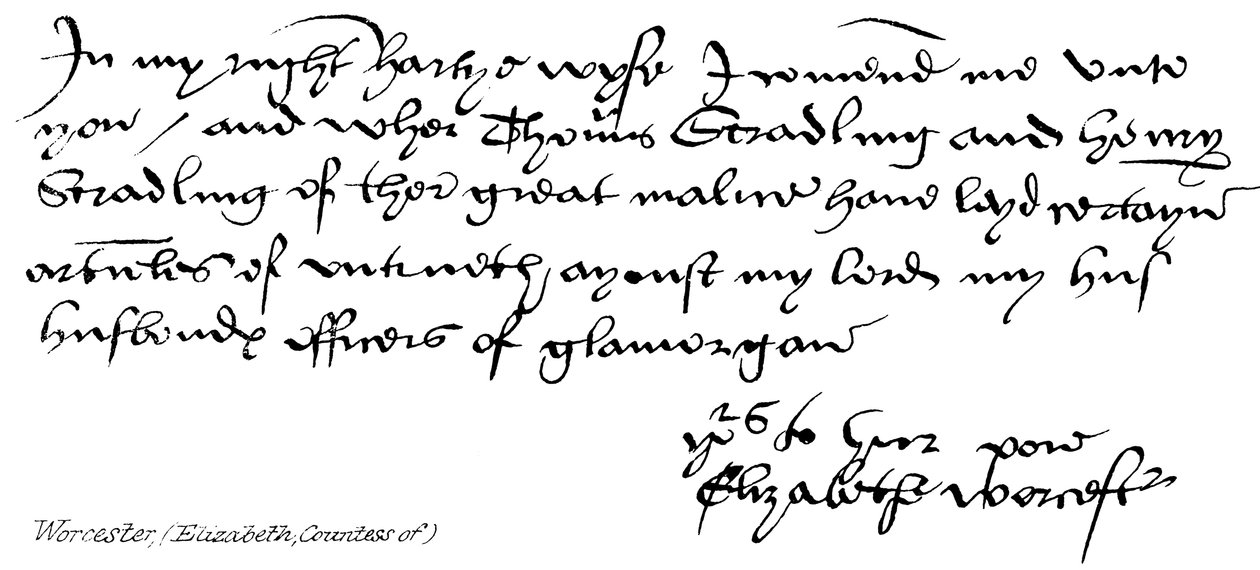 In my right hartye wyse I comend me unto
you / and wher Thoms Stradling and henry
Stradling of ther great malice have layd certayn
articles of untrueth ayenst my lord my hus
husbondes officers of glamorgan
yrs to hir power
Elizabeth Worcestr
Worcester, (Elizabeth, Countess of)